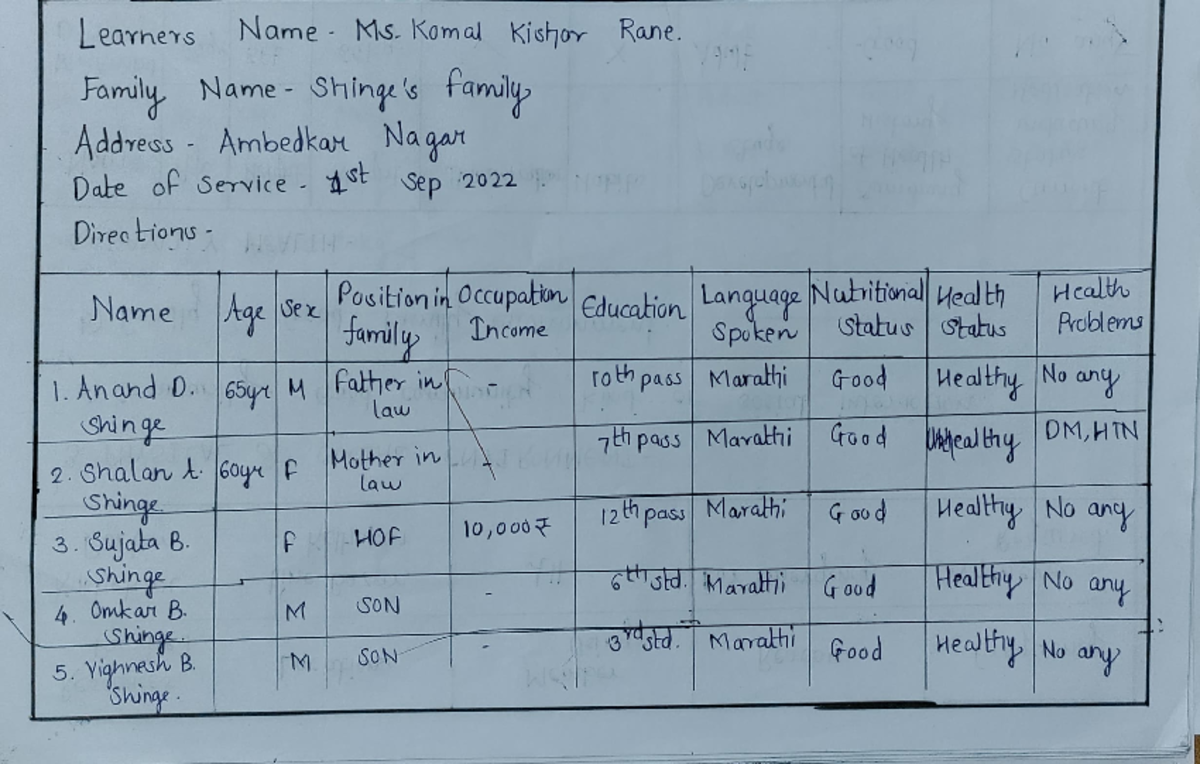 Learners Name - Ms. Komal Kishor Rane.
Family Name - Shinge's family
Address - Ambedkar Nagar
Date of Service - 1st Sep 2022
Directions -
Name Age Sex Position in family Occupation Income Education Language Spoken Nutritional Status Health Status Health Problems
1. Anand D. Shinge 65yr M Father in law - 10th pass Marathi Good Healthy No any
2. Shalan A. Shinge 60yr F Mother in law - 7th pass Marathi Good Unhealthy DM, HTN
3. Sujata B. Shinge F HOF 10,000₹ 12th pass Marathi Good Healthy No any
4. Omkar B. Shinge. M SON - 6th std. Marathi Good Healthy No any
5. Vighnesh B. Shinge. M SON - 3rd std. Marathi Good Healthy No any